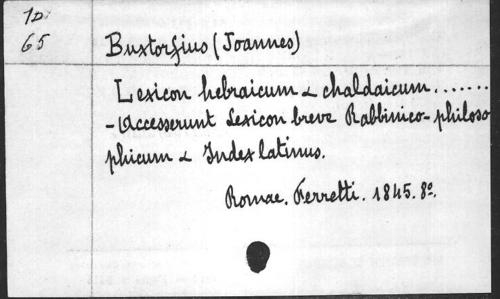 1D
65
Buxtorfius (Joannes)
Lexicon hebraicum & chaldaicum.......
- Accesserunt Lexicon breve Rabbinico-philoso
phicum & Index latinus.
Romae. Ferretti. 1845. 8º.